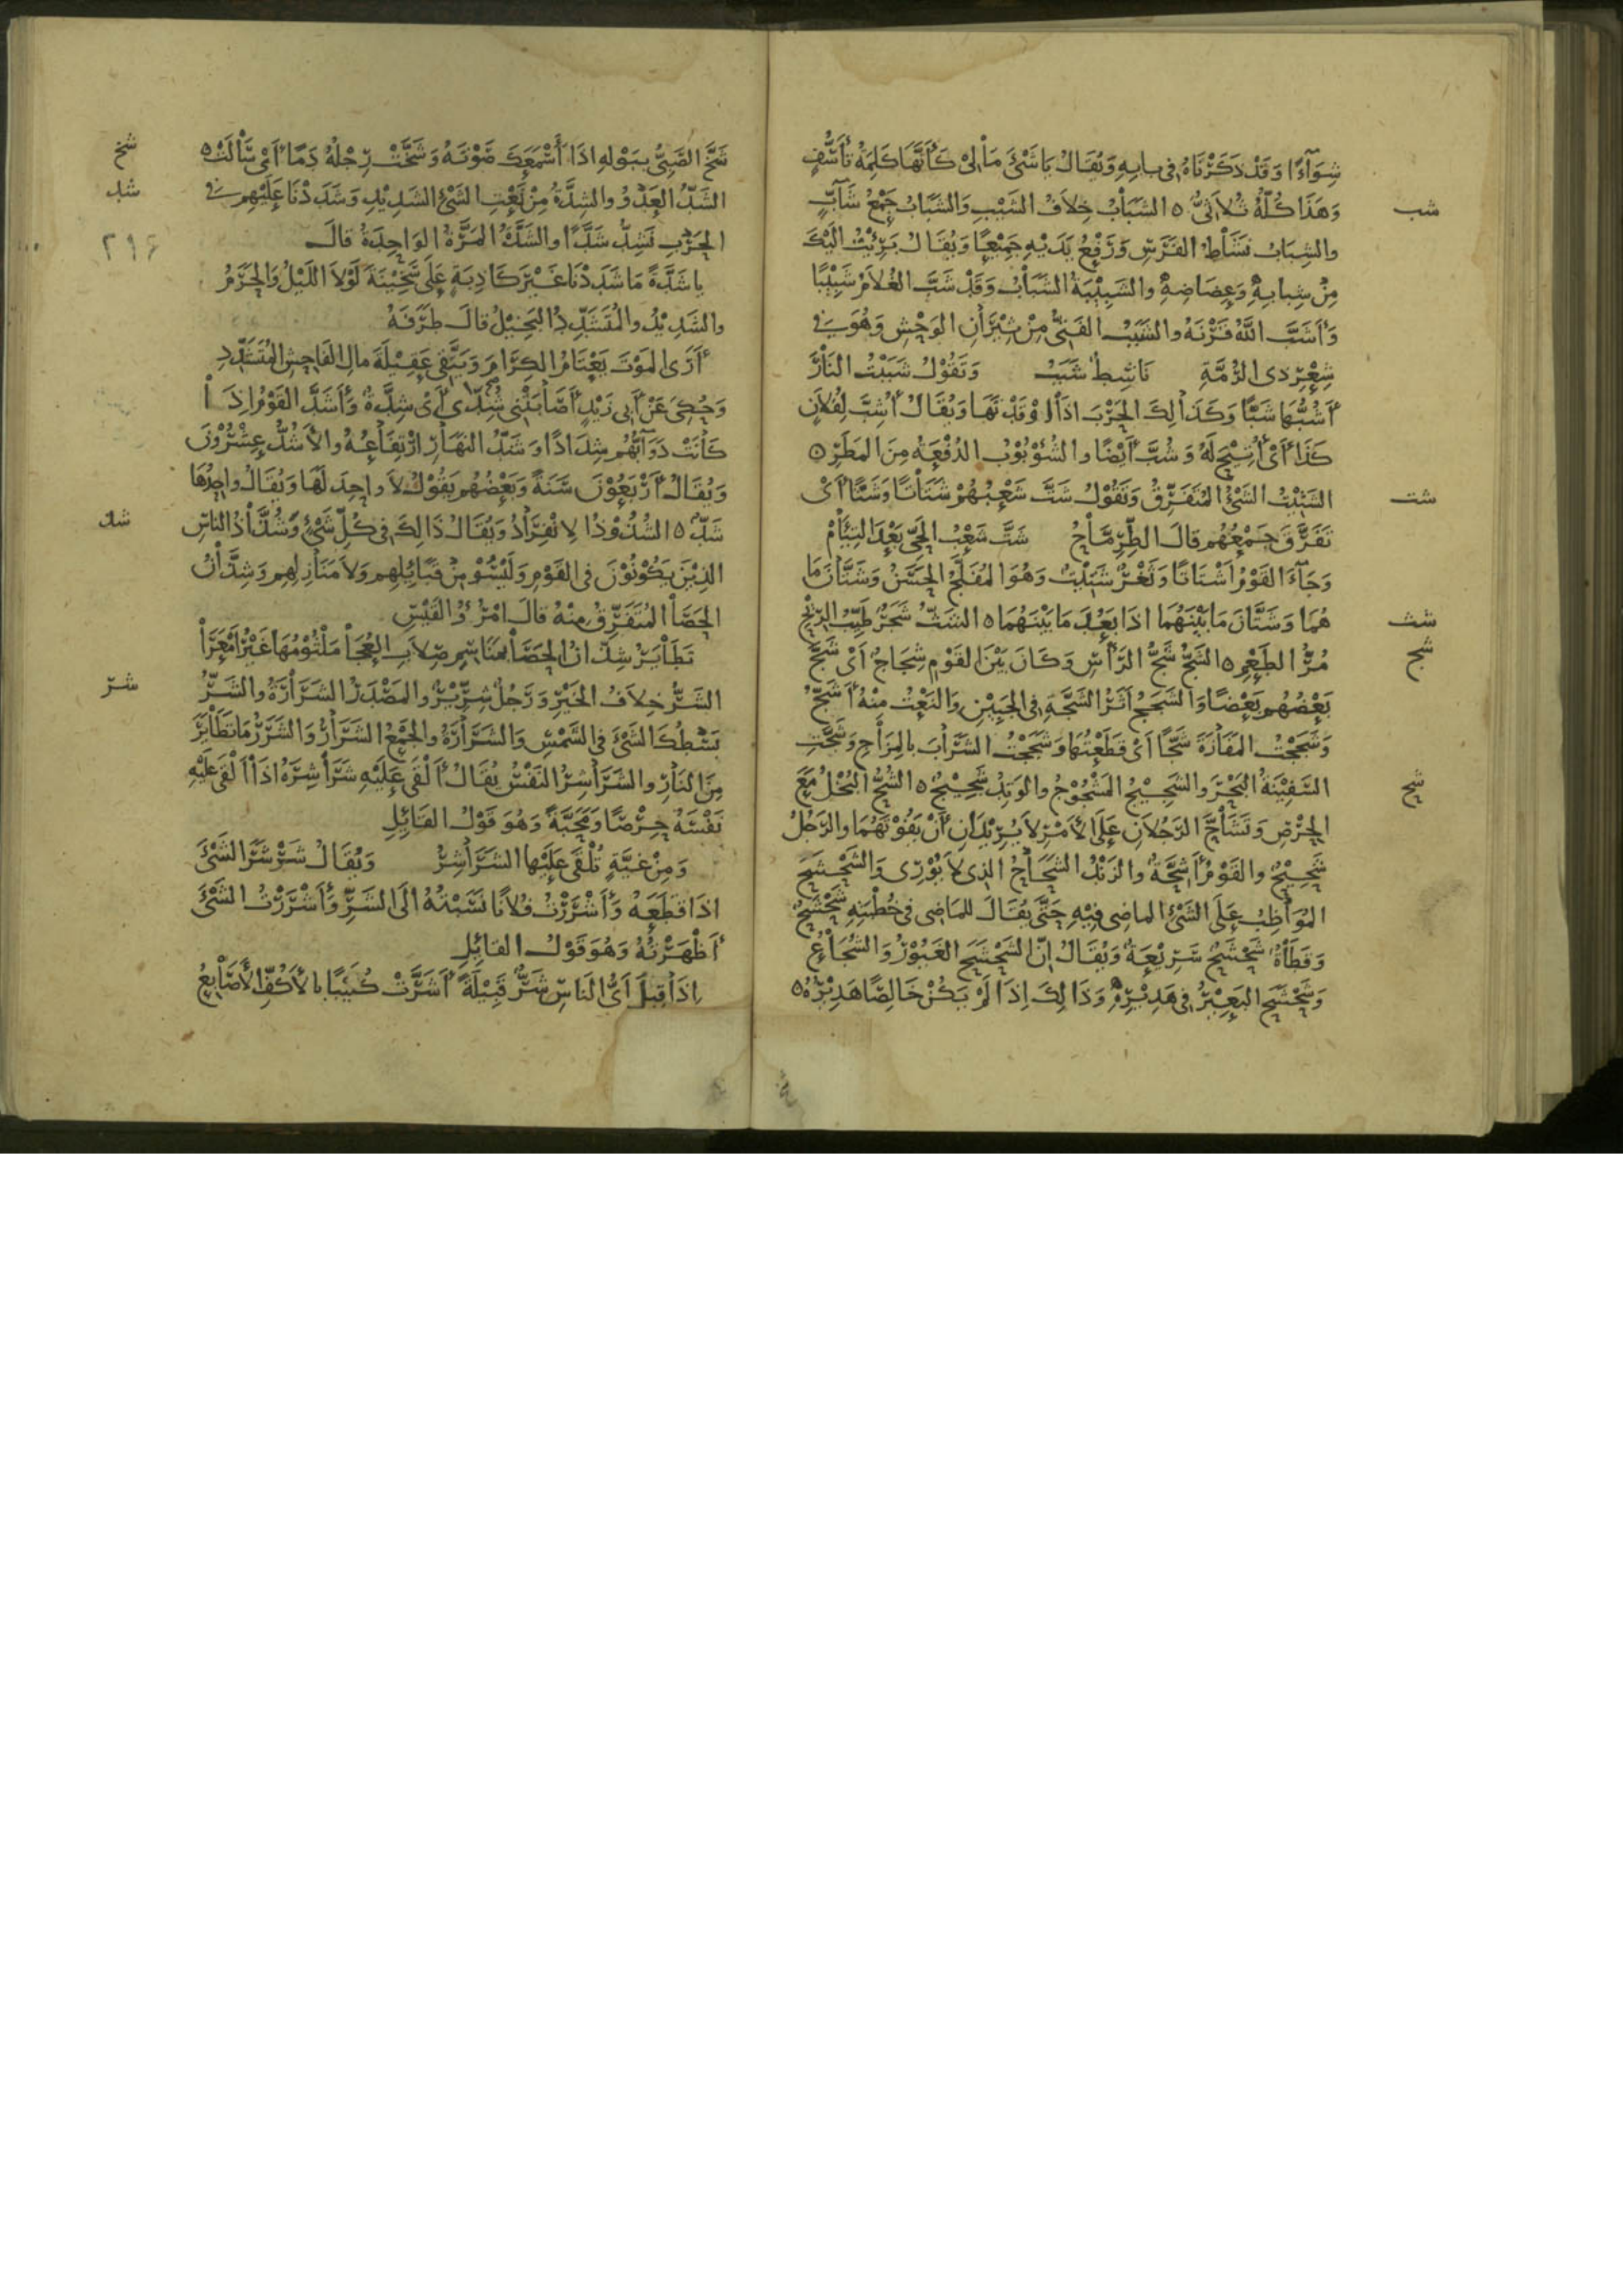 شِوَآءً وَقَدْ ذَكَرْنَاهُ فِي بابِهِ وَيُقَالُ يَا شَيْءَ مَا لِي كَأَنَّهَا كَلِمَةُ تَأَسُّفٍ
شب
وَهَذَا كُلُّهُ ثُلاَثِيٌّ ه الشَّبَابُ خِلاَفُ الشَّيْبِ وَالشَّبَابُ جَمْعُ شَابٍّ
والشِبَابُ نَشَاطُ الفَرَسِ وَرَفْعُ يَدَيْهِ جَمِيْعًا وَيُقَالُ بَرِئْتُ الَيْكَ
مِنْ شِبابِهِ وَعِضَاضِهِ والشَبِيْبَةُ الشَبَابُ وَقَدْ شَبَّ الغُلاَمُ شَبِيْبًا
وَأَشَبَّ اللَّهُ قَرْنَهُ والشَبَبُ الفَتِيُّ مِنْ ثِيْرَانِ الوَحْشِ وَهُوَ في
شِعْرِ ذى الرُمَّةِ نَاشِطٌ شَبَبُ وَتَقُوْلُ شَبَبْتُ النَارَ
أَشُبُّهَا شَبًّا وَكَذَالِكَ الحَرْبَ اذَا اوْقَدْتَهَا وَيُقَالُ أُشِبَّ لِفُلاَنٍ
كَذَا أَىْ أُتِيْحَ لَهُ وَشُبَّ أَيْضًا والشُؤْبُوْبُ الدُفْعَةُ مِنَ المَطَرِ ه
شت
الشَتِيْتُ الشَىْءُ المُتَفَرِّقُ وَتَقُوْلُ شَتَّ شَعْبُهُمْ شَتَاتًا وَشَتًّا أَىْ
تَفَرَّقَ جَمْعُهُم قالَ الطِّرِمَّاحُ شَتَّ شَعْبُ الحَىِّ بَعْدَ التِئَامْ
وَجَآءَ القَوْمُ اَشْتَاتًا وَثَغْرٌ شَتِيْتٌ وَهُوَ المُفَلَّجُ الحَسَنُ وَشَتَّانَ مَا
شث
هُمَا وَشَتَّانَ مَا بَيْنَهُمَا اذَا بَعُدَ مَا بَيْنَهُمَا ه الشَثُّ شَجَرٌ طَيِّبُ الرِيْحِ
شج
مُرُّ الطَعْمِ ه الشَجُّ شَجُّ الرَّأْسِ وَكَانَ بَيْنَ القَوْمِ شِجَاجٌ اَىْ شَجَّ
بَعْضُهُم بَعْضًا وَالشَجَجُ اَثَرُ الشَجَّةِ فِي الجَبِيْنِ وَالنَعْتُ مِنْهُ أَشَجُّ
وَشَجَجْتُ المَفَازَةَ شَجًّا اَىْ قَطَعْتُهَا وَشَجَجْتُ الشَرَابَ بالمِزَاجِ وَشَجَّتِ
شح
السَفِيْنَةُ البَحْرَ والشَجِيْجُ المَشْجُوْجُ والوَتِدُ شَجِيْجٌ ه الشُحُّ البُخْلُ مَعَ
الحِرْصِ وَتَشَاحَّ الرَجُلاَنِ عَلَى الأَمْرِ لاَ يُرِيْدَانِ أَنْ يَفُوْتَهُمَا والرَجُلُ
شَحِيْحٌ والقَوْمُ أَشِحَّةٌ والزَنْدُ الشَحَاحُ الذِى لاَ يُوْرِى وَالشَحْشَحُ
المُوَاظِبُ عَلَى الشَىْءِ الماضِى فِيْهِ حَتَّى يُقَالَ للمَاضِى فِي خُطْبَتِهِ شَحْشَحٌ
وَقَطَاةٌ شَحْشَحٌ سَرِيْعَةٌ وَيُقَالُ إِنَّ الشَحْشَحَ الغَيُوْرُ وَالشُجَاعُ
وَشَحْشَحَ البَعِيْرُ فِي هَدِيْرِهِ وَذَالِكَ اِذَا لَمْ يَكُنْ خَالِصًا هَدِيْرُهُ ه
شخ
شَخَّ الصَبِىُّ بِبَوْلِهِ اذَا أَسْمَعَكَ صَوْتَهُ وَشَخَّتْ رِجْلُهُ دَمًا أَىْ سَالَتْ ه
شد
الشَدُّ العَدْوُ والشِدَّةُ مِنْ نَعْتِ الشَىْءِ الشَدِيْدِ وَشَدَدْنَا عَلَيْهِم في
٢١٦
الحَرْبِ نَشِدُّ شَدًّا والشَدَّةُ المَرَّةُ الوَاحِدَةُ قالَ
يا شَدَّةً مَا شَدَدْنَا غَيْرَ كَاذِبَةٍ عَلَى سَخِيْنَةَ لَوْلاَ اللَيْلُ وَالحَرَمُ
والشَدِيْدُ والمُتَشَدِّدُ البَخِيْلُ قالَ طَرَفَةُ
أَرَى المَوْتَ يَعْتَامُ الكِرَامَ وَيَصْطَفِى عَقِيْلَةَ مالِ الفَاحِشِ المُتَشَدِّدِ
وَحُكِىَ عَنْ اَبِى زَيْدٍ أَصَابَتْنِى شُدَّى أَىْ شِدَّةٌ وَأَشَدَّ القَوْمُ اِذَا
كَانَتْ دَوَآبُّهُم شِدَادًا وَشَدُّ النَهَارِ ارْتِفَاعُهُ والأَشُدُّ عِشْرُوْنَ
وَيُقَالُ أَرْبَعُوْنَ سَنَةً وَبَعْضُهُم يَقُوْلُ لاَ واحِدَ لَهَا وَيُقَالُ واحِدُهَا
شذ
شَدٌّ ه الشُذُوْذُ الاِنْفِرَادُ وَيُقَالُ ذَالِكَ فِي كُلِّ شَىْءٍ وَشُذَّاذُ الناسِ
الذِيْنَ يَكُوْنُوْنَ فِي القَوْمِ وَلَيْسُوْا مِنْ قَبَائِلِهِم وَلاَ مَنَازِلِهِم وَشِذَّانُ
الحَصَا المُتَفَرِّقُ مِنْهُ قالَ امْرُؤُ القَيْسِ
تَطَايَرُ شِذَّانُ الحَصَا بِمَنَاسِمٍ صِلاَبِ العُجَا مَلْثُوْمُهَا غَيْرُ اَمْعَرَا
شر
الشَرُّ خِلاَفُ الخَيْرِ وَرَجُلٌ شِرِّيْرٌ والمَصْدَرُ الشَرَارَةُ والشَرُّ
بَسْطُكَ الشَىْءَ فِي الشَمْسِ وَالشَرَارَةُ والجَمْعُ الشَرَارُ وَالشَرَرُ مَا تَطَايَرَ
مِنَ النَارِ والشَرَاشِرُ النَفْسُ يُقَالُ أَلْقَى عَلَيْهِ شَرَاشِرَهُ اذَا اَلْقَى عَلَيْهِ
نَفْسَهُ حِرْصًا وَمَحَبَّةً وَهُوَ قَوْلُ القَائِلِ
وَمِنْ غَيَّةٍ تُلْقَى عَلَيْها الشَرَاشِرُ وَيُقَالُ شَرْشَرَ الشَىْءَ
اذَا قَطَعَهُ وَأَشْرَرْتُ فُلاَنًا نَسَبْتُهُ الَى الشَرِّ وَأَشْرَرْتُ الشَىْءَ
أَظْهَرْتُهُ وَهُوَ قَوْلُ القَائِلِ
اِذَا قِيلَ اَىُّ النَاسِ شَرٌّ قَبِيْلَةً أَشَرَّتْ كُلَيْبًا بالأَكُفِّ الأَصَابِعُ